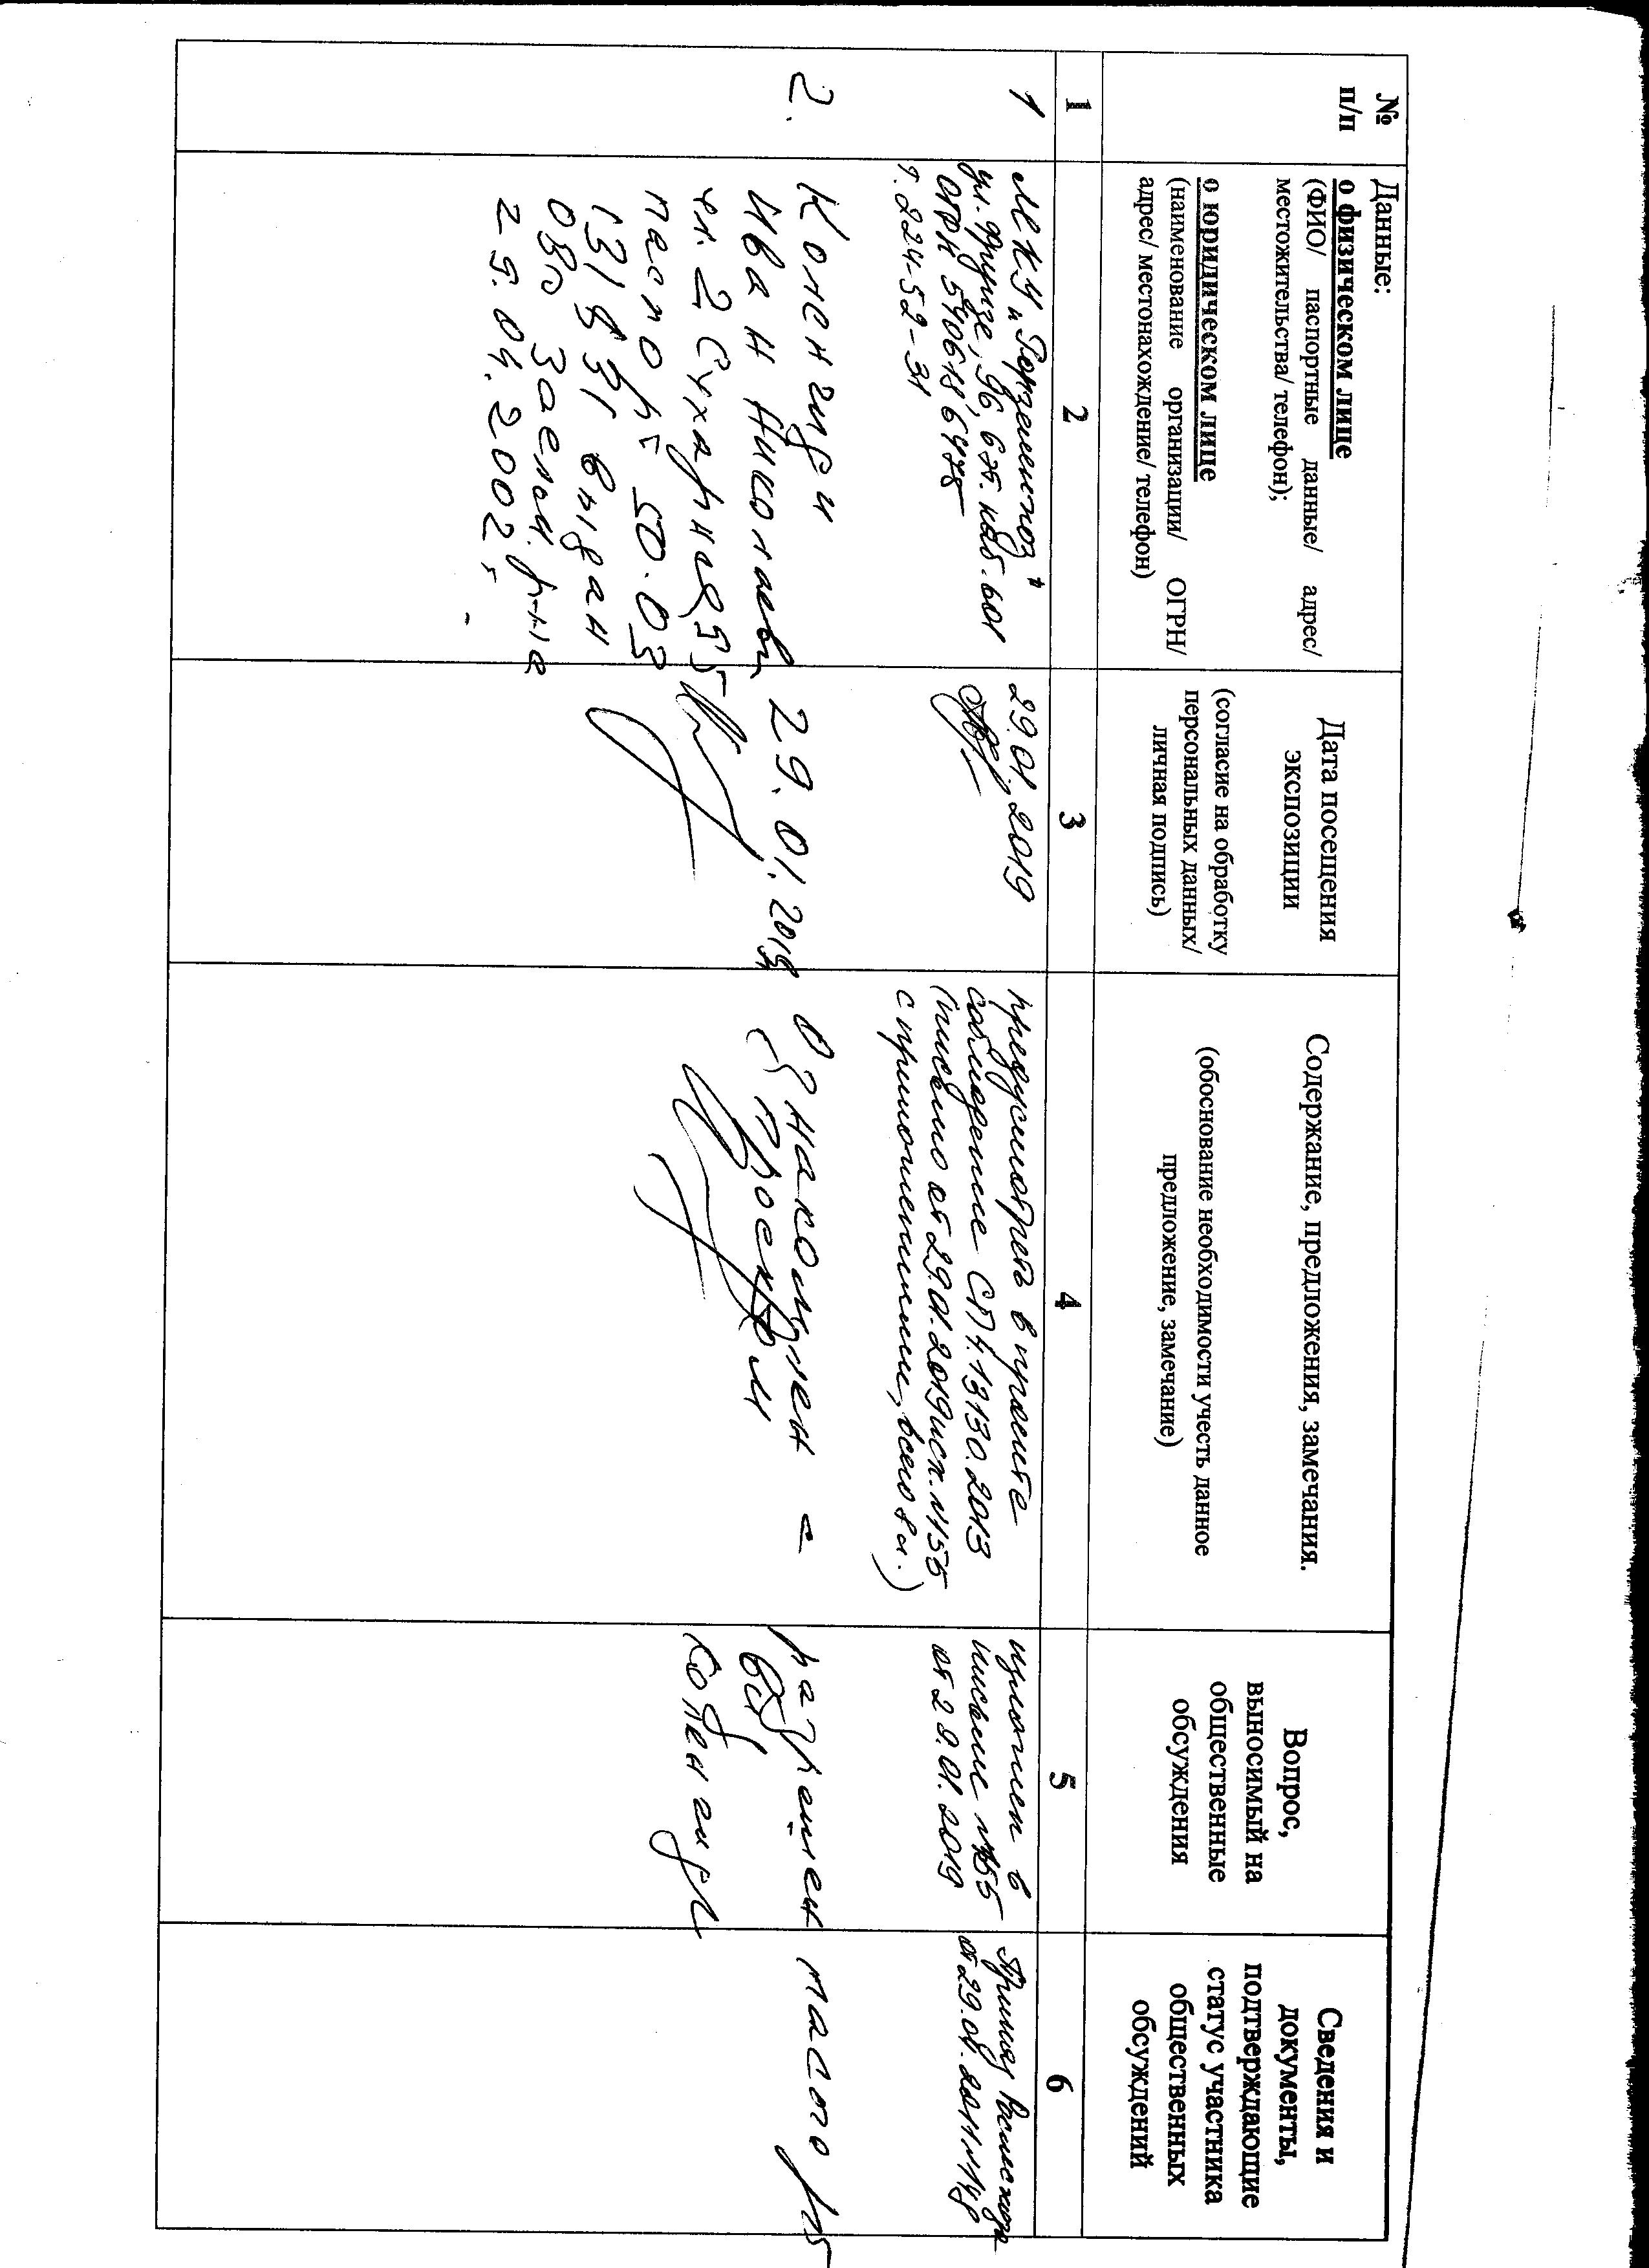 №
п/п
Данные:
о физическом лице
(ФИО/ паспортные данные/ адрес/
местожительства/ телефон);
о юридическом лице
(наименование организации/ ОГРН/
адрес/ местонахождение/ телефон)
Дата посещения
экспозиции
(согласие на обработку
персональных данных/
личная подпись)
Содержание, предложения, замечания.
(обоснование необходимости учесть данное
предложение, замечание)
Вопрос,
выносимый на
общественные
обсуждения
Сведения и
документы,
подтверждающие
статус участника
общественных
обсуждений
1
2
3
4
5
6
1
МКУ "Горземстрой"
ул. Фрунзе, 96, 6 эт. каб. 601
ОГРН
т. 224-52-31
29.01.2019
предусмотреть в проекте
соблюдение СП 4.13130.2013
(письмо от 29.01.2019 исх. №155
с приложениями, всего 8 л.)
изложен в
письме №155
от 29.01.2019
Приказ
2.
Колснгиди
Иван Николаев
2 Сухарная, 55
паспорт 50.03
131831 выдан
ОВД Заельц. р-на
29.04.2002
29.01.2019
Ознакомлен =
с проектом
разрешен
паспорт